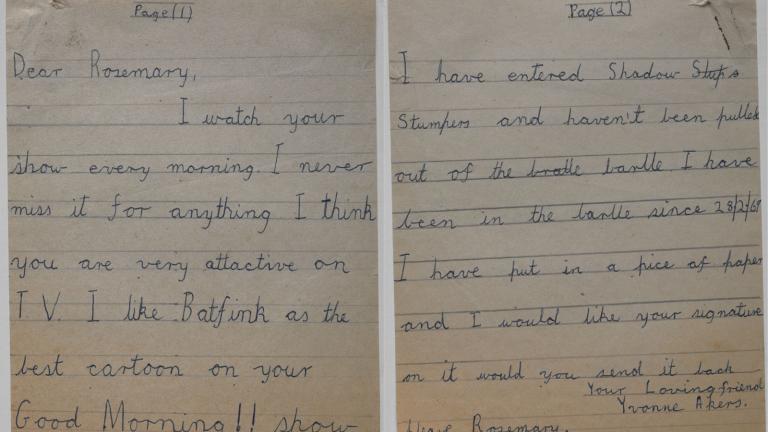 Page (1)
Dear Rosemary,
I watch your
show every morning. I never
miss it for anything I think
you are very attactive on
T.V. I like Batfink as the
best cartoon on your
Good Morning!! show
Page (2)
I have entered Shadow
Stumpers and haven't been pulled
out of the bratle barlle. I have
been in the barlle since 28/2/67
I have put in a pice of paper
and I would like your signature
on it would you send it back
Your Loving friend
Yvonne Akers.
Rosemary.